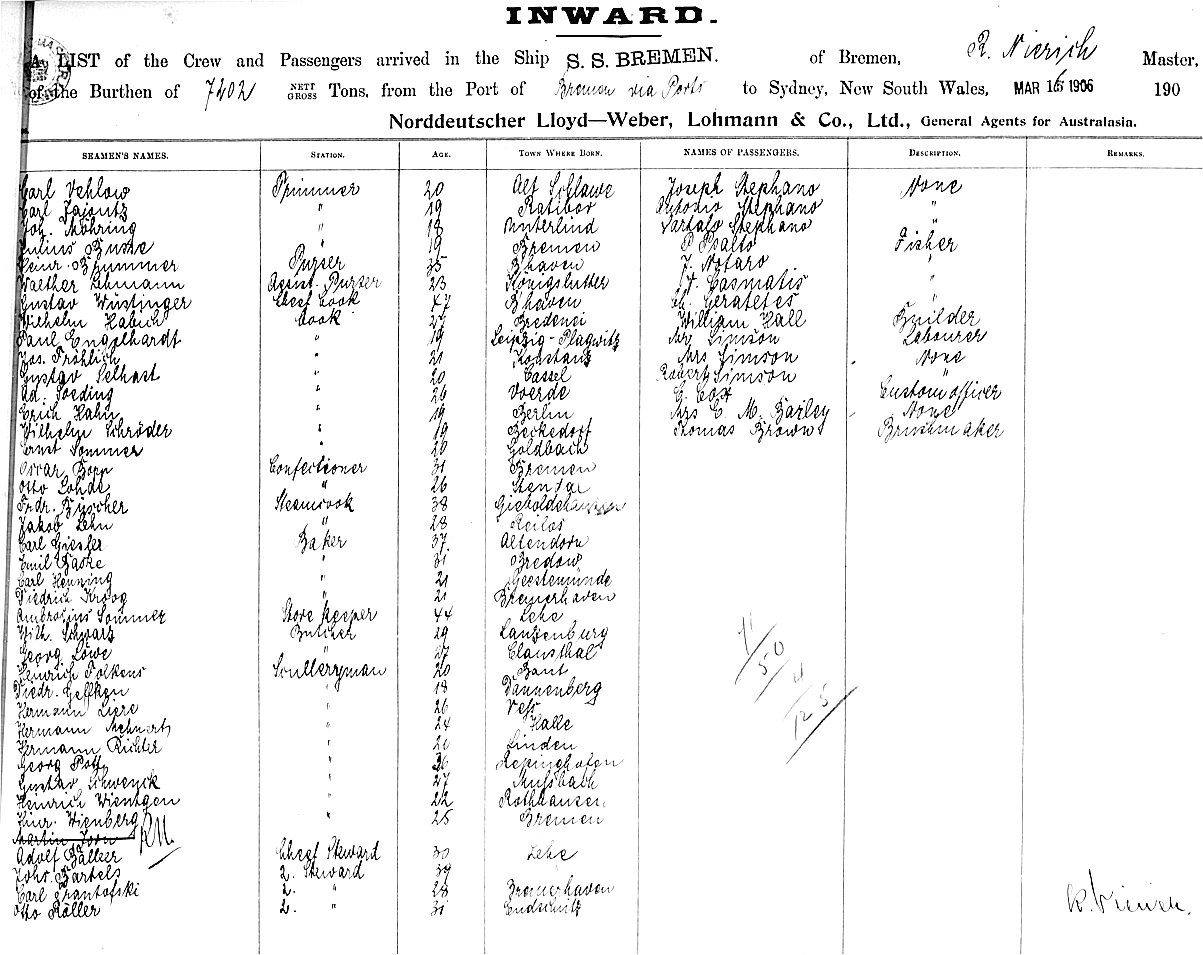 INWARD.
A LIST of the Crew and Passengers arrived in the Ship S. S. BREMEN. of Bremen, R. Nierich Master,
of the Burthen of 7402 NETT GROSS Tons, from the Port of Bremen via Ports to Sydney, New South Wales, MAR 16 1906 190
Norddeutscher Lloyd—Weber, Lohmann & Co., Ltd., General Agents for Australasia.
SEAMEN'S NAMES. STATION. AGE. TOWN WHERE BORN. NAMES OF PASSENGERS. DESCRIPTION. REMARKS.
Carl Vehlow Trimmer 20 Alt Schlawe Joseph Stephano None
Carl " 19 Ratibor Stephano "
Joh. Möhring " 18 Unterlind Stephano "
Julius Busse " 19 Bremen P Psalto Fisher
Heinr. Brummer Purser 35 Bhaven J. Notaro "
Walther Lehmann Assist. Purser 23 Königslutter Casmatis "
Gustav Wüstinger Chief Cook 47 Bhaven Geratetes "
Wilhelm Habich Cook 27 Bredenei William Hall Builder
Paul Engelhardt " 19 Leipzig-Plagwitz Mr Simson Labourer
Jos. Fröhlich " 21 Konstanz Mrs Simson None
Gustav Selhast " 20 Cassel Robert Simson "
Ad. Soeding " 26 Voerde G. Cox Custom officer
Erich Hahn " 19 Berlin Mrs C M. Bailey None
Wilhelm Schröder " 19 Beckedorf Thomas Brown Brushmaker
Ernst Sommer " 20 Goldbach
Oscar Bopp Confectioner 31 Bremen
Otto Lohde " 26 Stendal
Frdr. Büscher Steamcook 38 Gieboldehausen
Jakob Lehn " 28
Carl Giesler Baker 37 Altendorn
Emil Baske " 31 Bredow
Carl Henning " 21 Geestemünde
Diedrich Kroog " 21 Bremerhaven
Ambrosius Sommer Store Keeper 44 Lehe
Wilh. Schwarz Butcher 29 Lauenburg
Georg Löwe " 27 Clausthal
Heinrich Folkens Scullerryman 20 Bant
Diedr. Geffken " 18 Dannenberg
Hermann Liere " 26
Hermann Mehnert " 24 Halle
Hermann Richter " 21 Linden
Georg Pott " 36
Gustav Schwenck " 27 Mussbach
Heinrich Wientgen " 22 Rotthausen
Hinr. Wienberg " 25 Bremen
Martin Jorn RN
Adolf Balleer Chief Steward 30 Lehe
Johs. Bartels 2. Steward 39
Carl Trantofski 2. " 28 Bremerhaven
Otto Röller 2. " 31 Endschütz
11/50
4/125
R. Nierich.